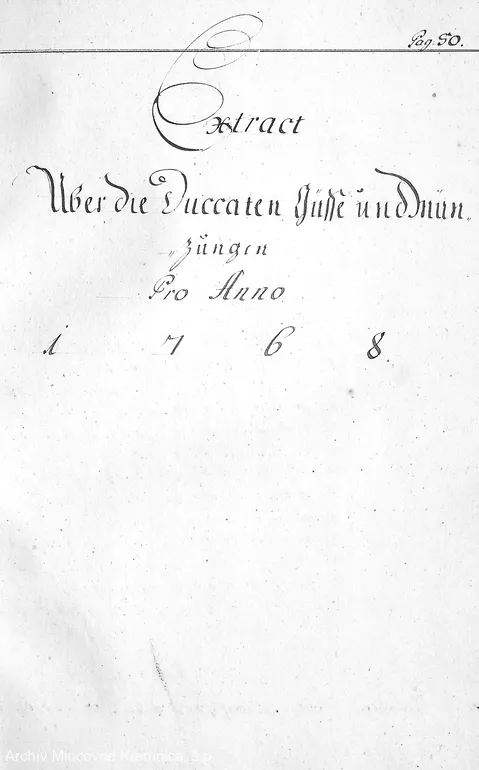 Pag. 50.
Extract
Uber die Duccaten Güsse und Mün„
„zungen
Pro Anno
1 7 6 8.
Archiv Mincovne Kremnica, š.p.